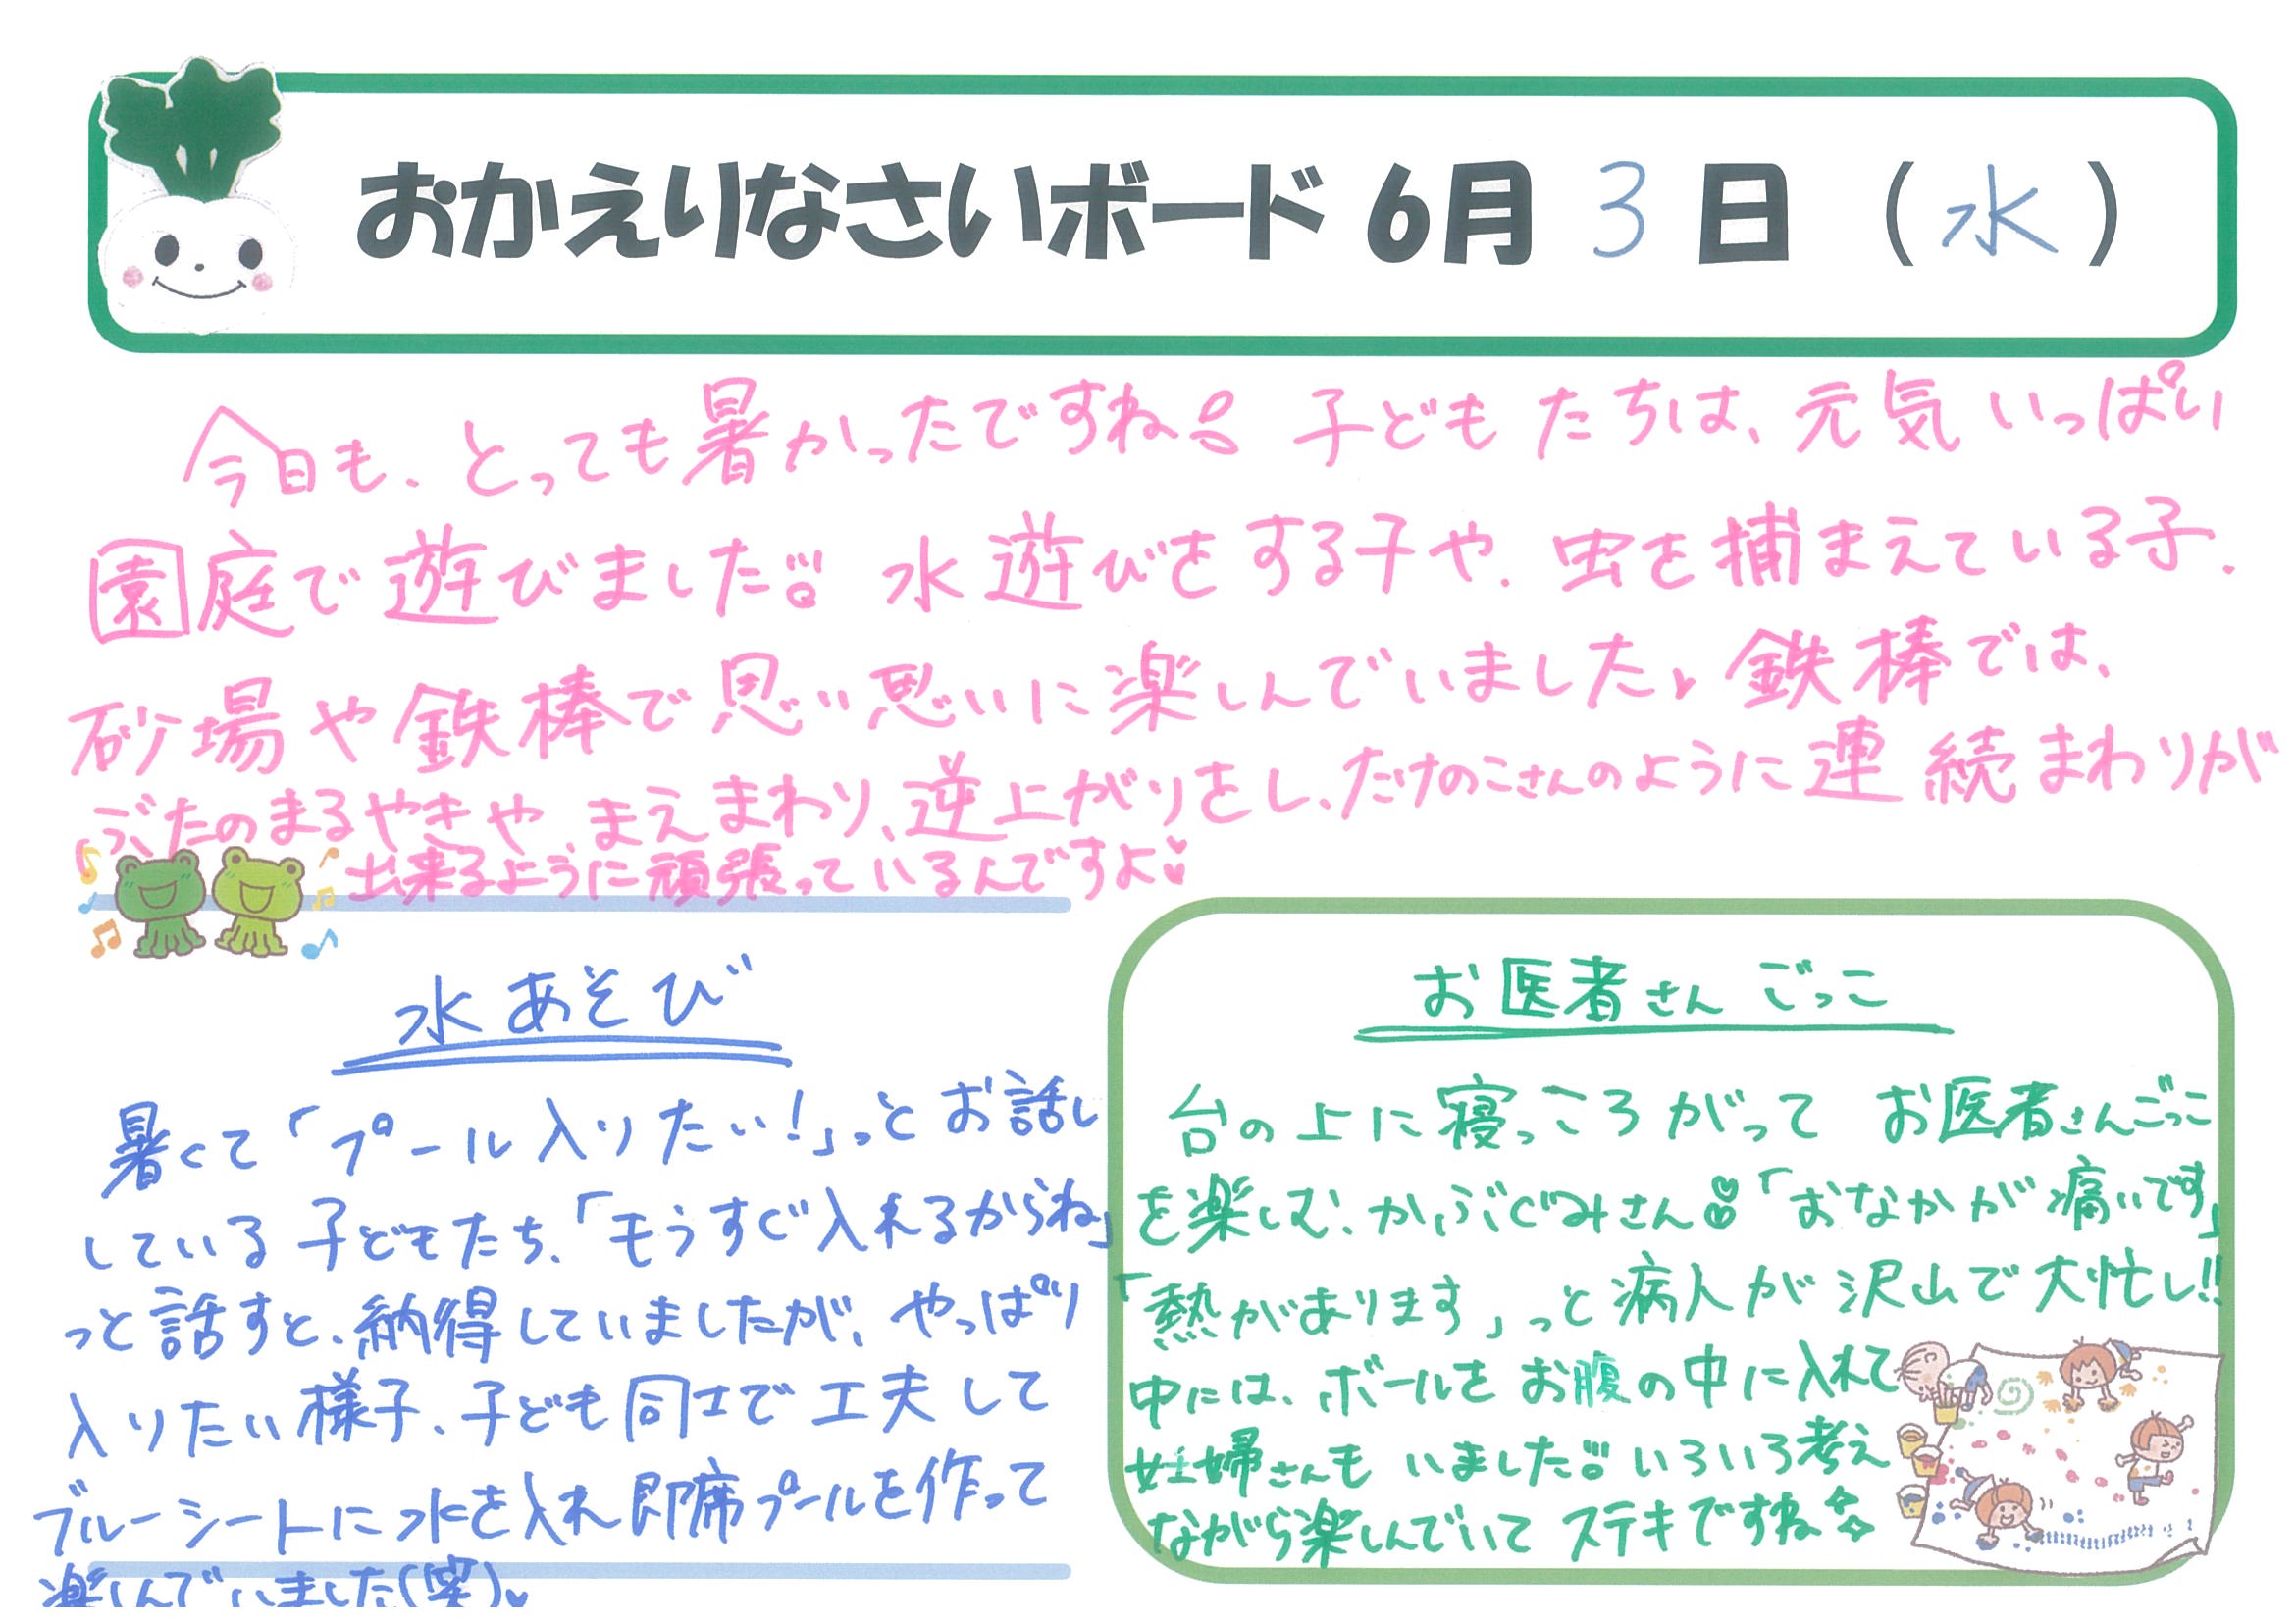 おかえりなさいボード 6月 3 日 (水)
今日も、とっても暑かったですね 子どもたちは、元気いっぱい
園庭で遊びました 水遊びをする子や、虫を捕まえている子、
砂場や鉄棒で思い思いに楽しんでいました♪ 鉄棒では、
ぶたのまるやきや、まえまわり、逆上がりをし、たけのこさんのように連続まわりが
出来るように頑張っているんですよ
水あそび
暑くて「プール入りたい!」っとお話し
している子どもたち、「もうすぐ入れるからね」
っと話すと、納得していましたが、やっぱり
入りたい様子、子ども同士で工夫して
ブルーシートに水を入れ即席プールを作って
楽しんでいました(笑)♥
お医者さんごっこ
台の上に寝っころがって お医者さんごっこ
を楽しむ、かぶぐみさん 「おなかが痛いです」
「熱があります」っと病人が沢山で大忙し!!
中には、ボールをお腹の中に入れて
妊婦さんも いました いろいろ考え
ながら楽しんでいて ステキですね